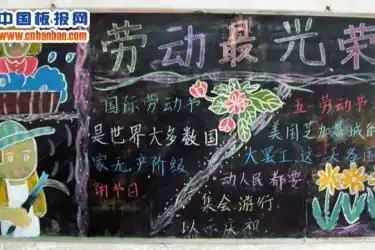 中国板报网
www.cnbanbao.cn
劳动最光荣
国际劳动节
是世界大多数国
家无产阶级
的节日
五一劳动节
美国芝加哥城的
大罢工,这一天各国
动人民都要
集会,游行,
以示庆祝